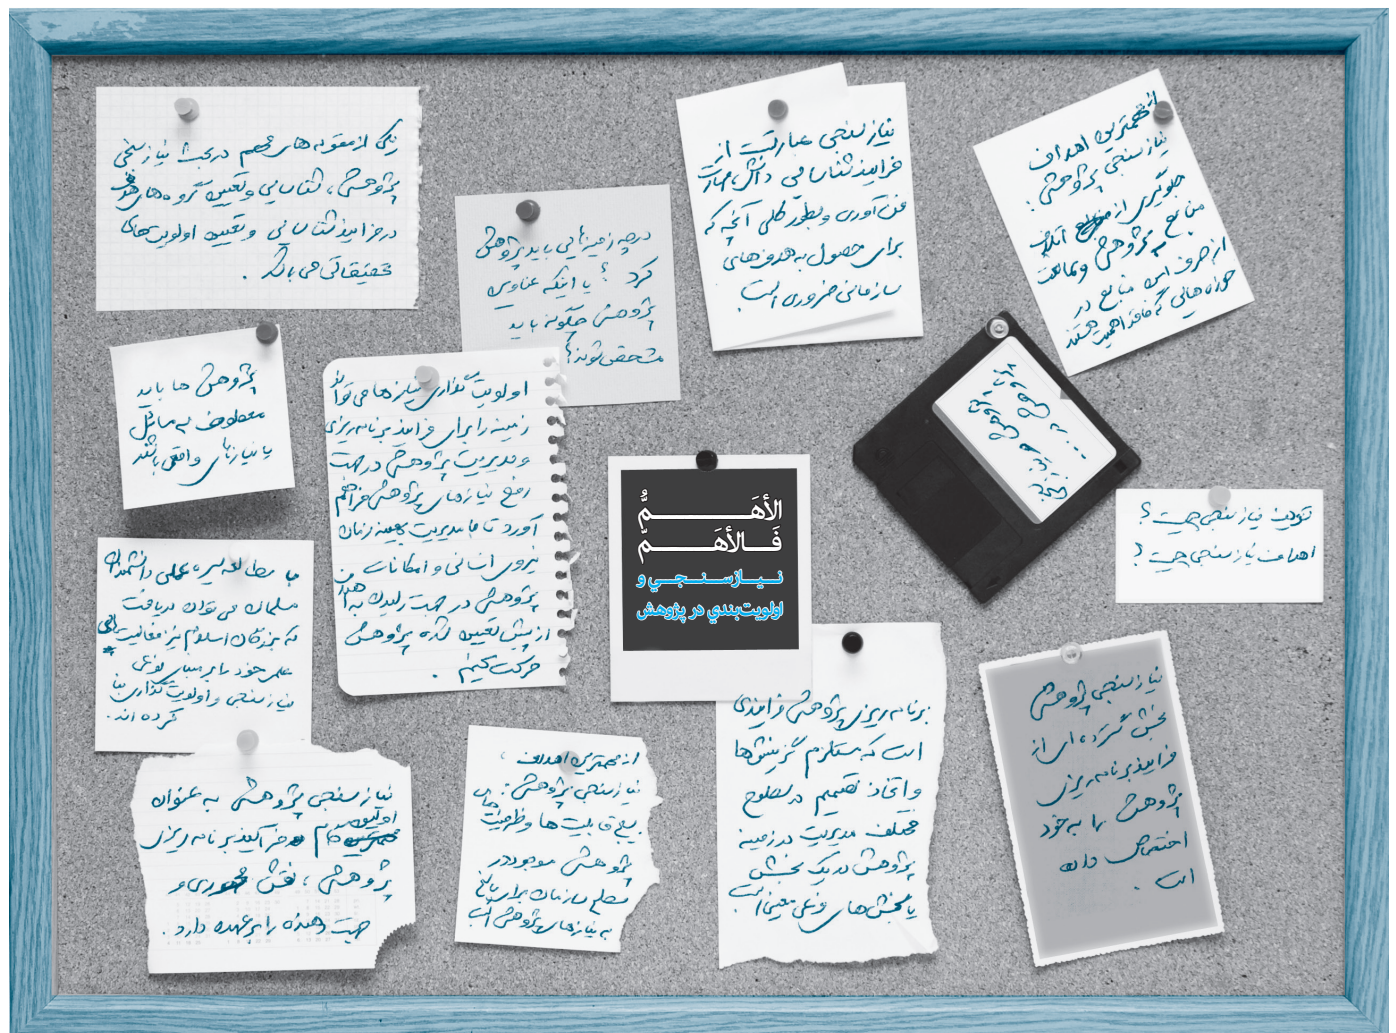 یکی از مقوله های مهم در بحث نیازسنجی
پژوهشی، شناسایی و تعیین گروه های هدف
در فرایند شناسایی و تعیین اولویت های
تحقیقاتی می باشد.
در چه زمینه‌هایی باید پژوهش
کرد؟ یا اینکه عناوین
پژوهش چگونه باید
مشخص شوند؟
نیازسنجی عبارت است از
فرایند شناسایی دانش، مهارت
فن آوری و بطور کلی آنچه که
برای حصول به هدف های
سازمانی ضروری است.
از مهمترین اهداف
نیازسنجی پژوهشی:
جلوگیری از اتلاف
منابع پژوهش و ممانعت
از صرف این منابع در
حوزه هایی که فاقد اهمیت هستند
پژوهش ها باید
معطوف به مسائل
یا نیازهای واقعی باشند
اولویت گذاری نیازها می تواند
زمینه را برای فرایند برنامه ریزی
و مدیریت پژوهش در جهت
رفع نیازهای پژوهش فراهم
آورد تا با مدیریت بهینه زمان
نیروی انسانی و امکانات
پژوهش در جهت رسیدن به اهداف
از پیش تعیین شده پژوهش
حرکت کنیم.
الأهَمُّ
فَالأهَمّ
نیازسنجي و
اولویت‌بندي در پژوهش
تعریف نیازسنجی چیست؟
اهداف نیازسنجی چیست؟
با مطالعه سیره عملی دانشمندان
مسلمان می توان دریافت
که بزرگان اسلام نیز فعالیت های
علمی خود را بر مبنای نوعی
نیازسنجی و اولویت گذاری بنا
کرده اند.
نیازسنجی پژوهشی به عنوان
اولین گام در فرآیند برنامه ریزی
پژوهشی، نقش محوری و
جهت دهنده را برعهده دارد.
از مهمترین اهداف
نیازسنجی پژوهشی:
بسیج قابلیت ها و ظرفیت های
پژوهش موجود در
سطح سازمان برای پاسخ
به نیازهای پژوهش است
برنامه ریزی پژوهش فرایندی
است که مستلزم گزینش ها
و اتخاذ تصمیم در سطوح
مختلف مدیریت در زمینه
پژوهش در یک بخش
یا بخش های فرعی معین است.
نیازسنجی پژوهش
بخش گسترده ای از
فرایند برنامه ریزی
پژوهش را به خود
اختصاص داده
است.